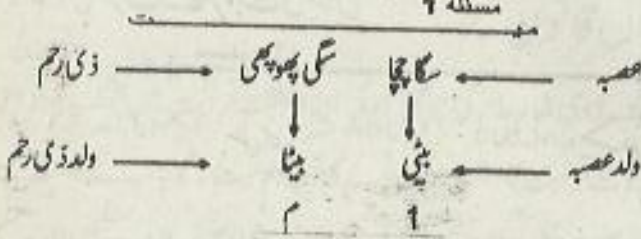 مسئلہ 1
عصبہ سگا چچا سگی پھوپھی ذی رحم
ولد عصبہ بیٹی بیٹا ولد ذی رحم
1 م